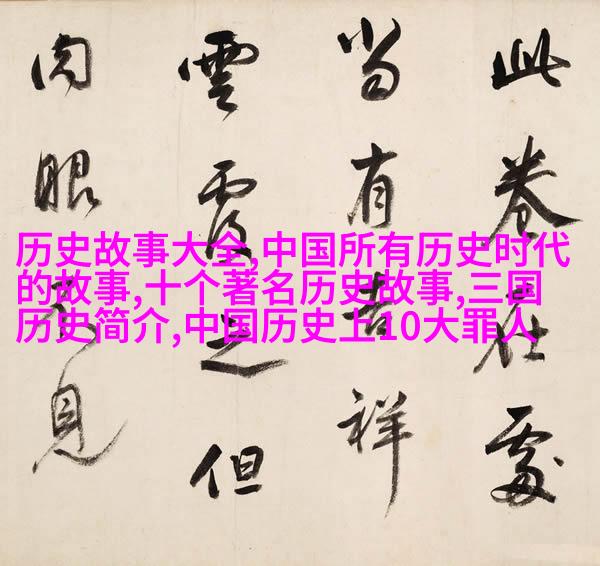 此卷在處
當有吉祥
雲覆之但
肉眼不見
历史故事大全,中国所有历史时代
的故事,十个著名历史故事,三国
历史简介,中国历史上10大罪人